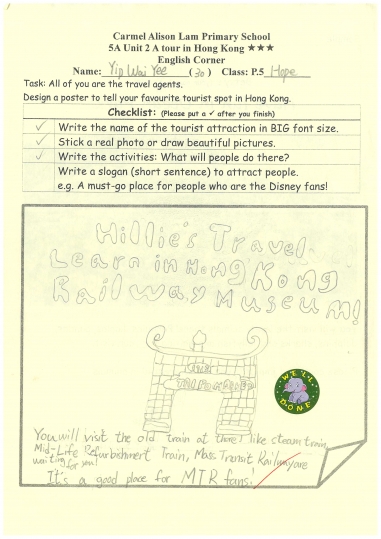 Carmel Alison Lam Primary School
5A Unit 2 A tour in Hong Kong ★★★
English Corner
Name: Yip Wai Yee (30) Class: P.5 Hope
Task: All of you are the travel agents.
Design a poster to tell your favourite tourist spot in Hong Kong.
Checklist: (Please put a ✓ after you finish)
✓ Write the name of the tourist attraction in BIG font size.
✓ Stick a real photo or draw beautiful pictures.
✓ Write the activities: What will people do there?
Write a slogan (short sentence) to attract people.
e.g. A must-go place for people who are the Disney fans!
Hillie's Travel
Learn in Hong Kong
Railway Museum!
WELL DONE
You will visit the old train at there, like steam train,
Mid-Life Refurbishment Train, Mass Transit Railway are
waiting for you!
It's a good place for MTR fans!